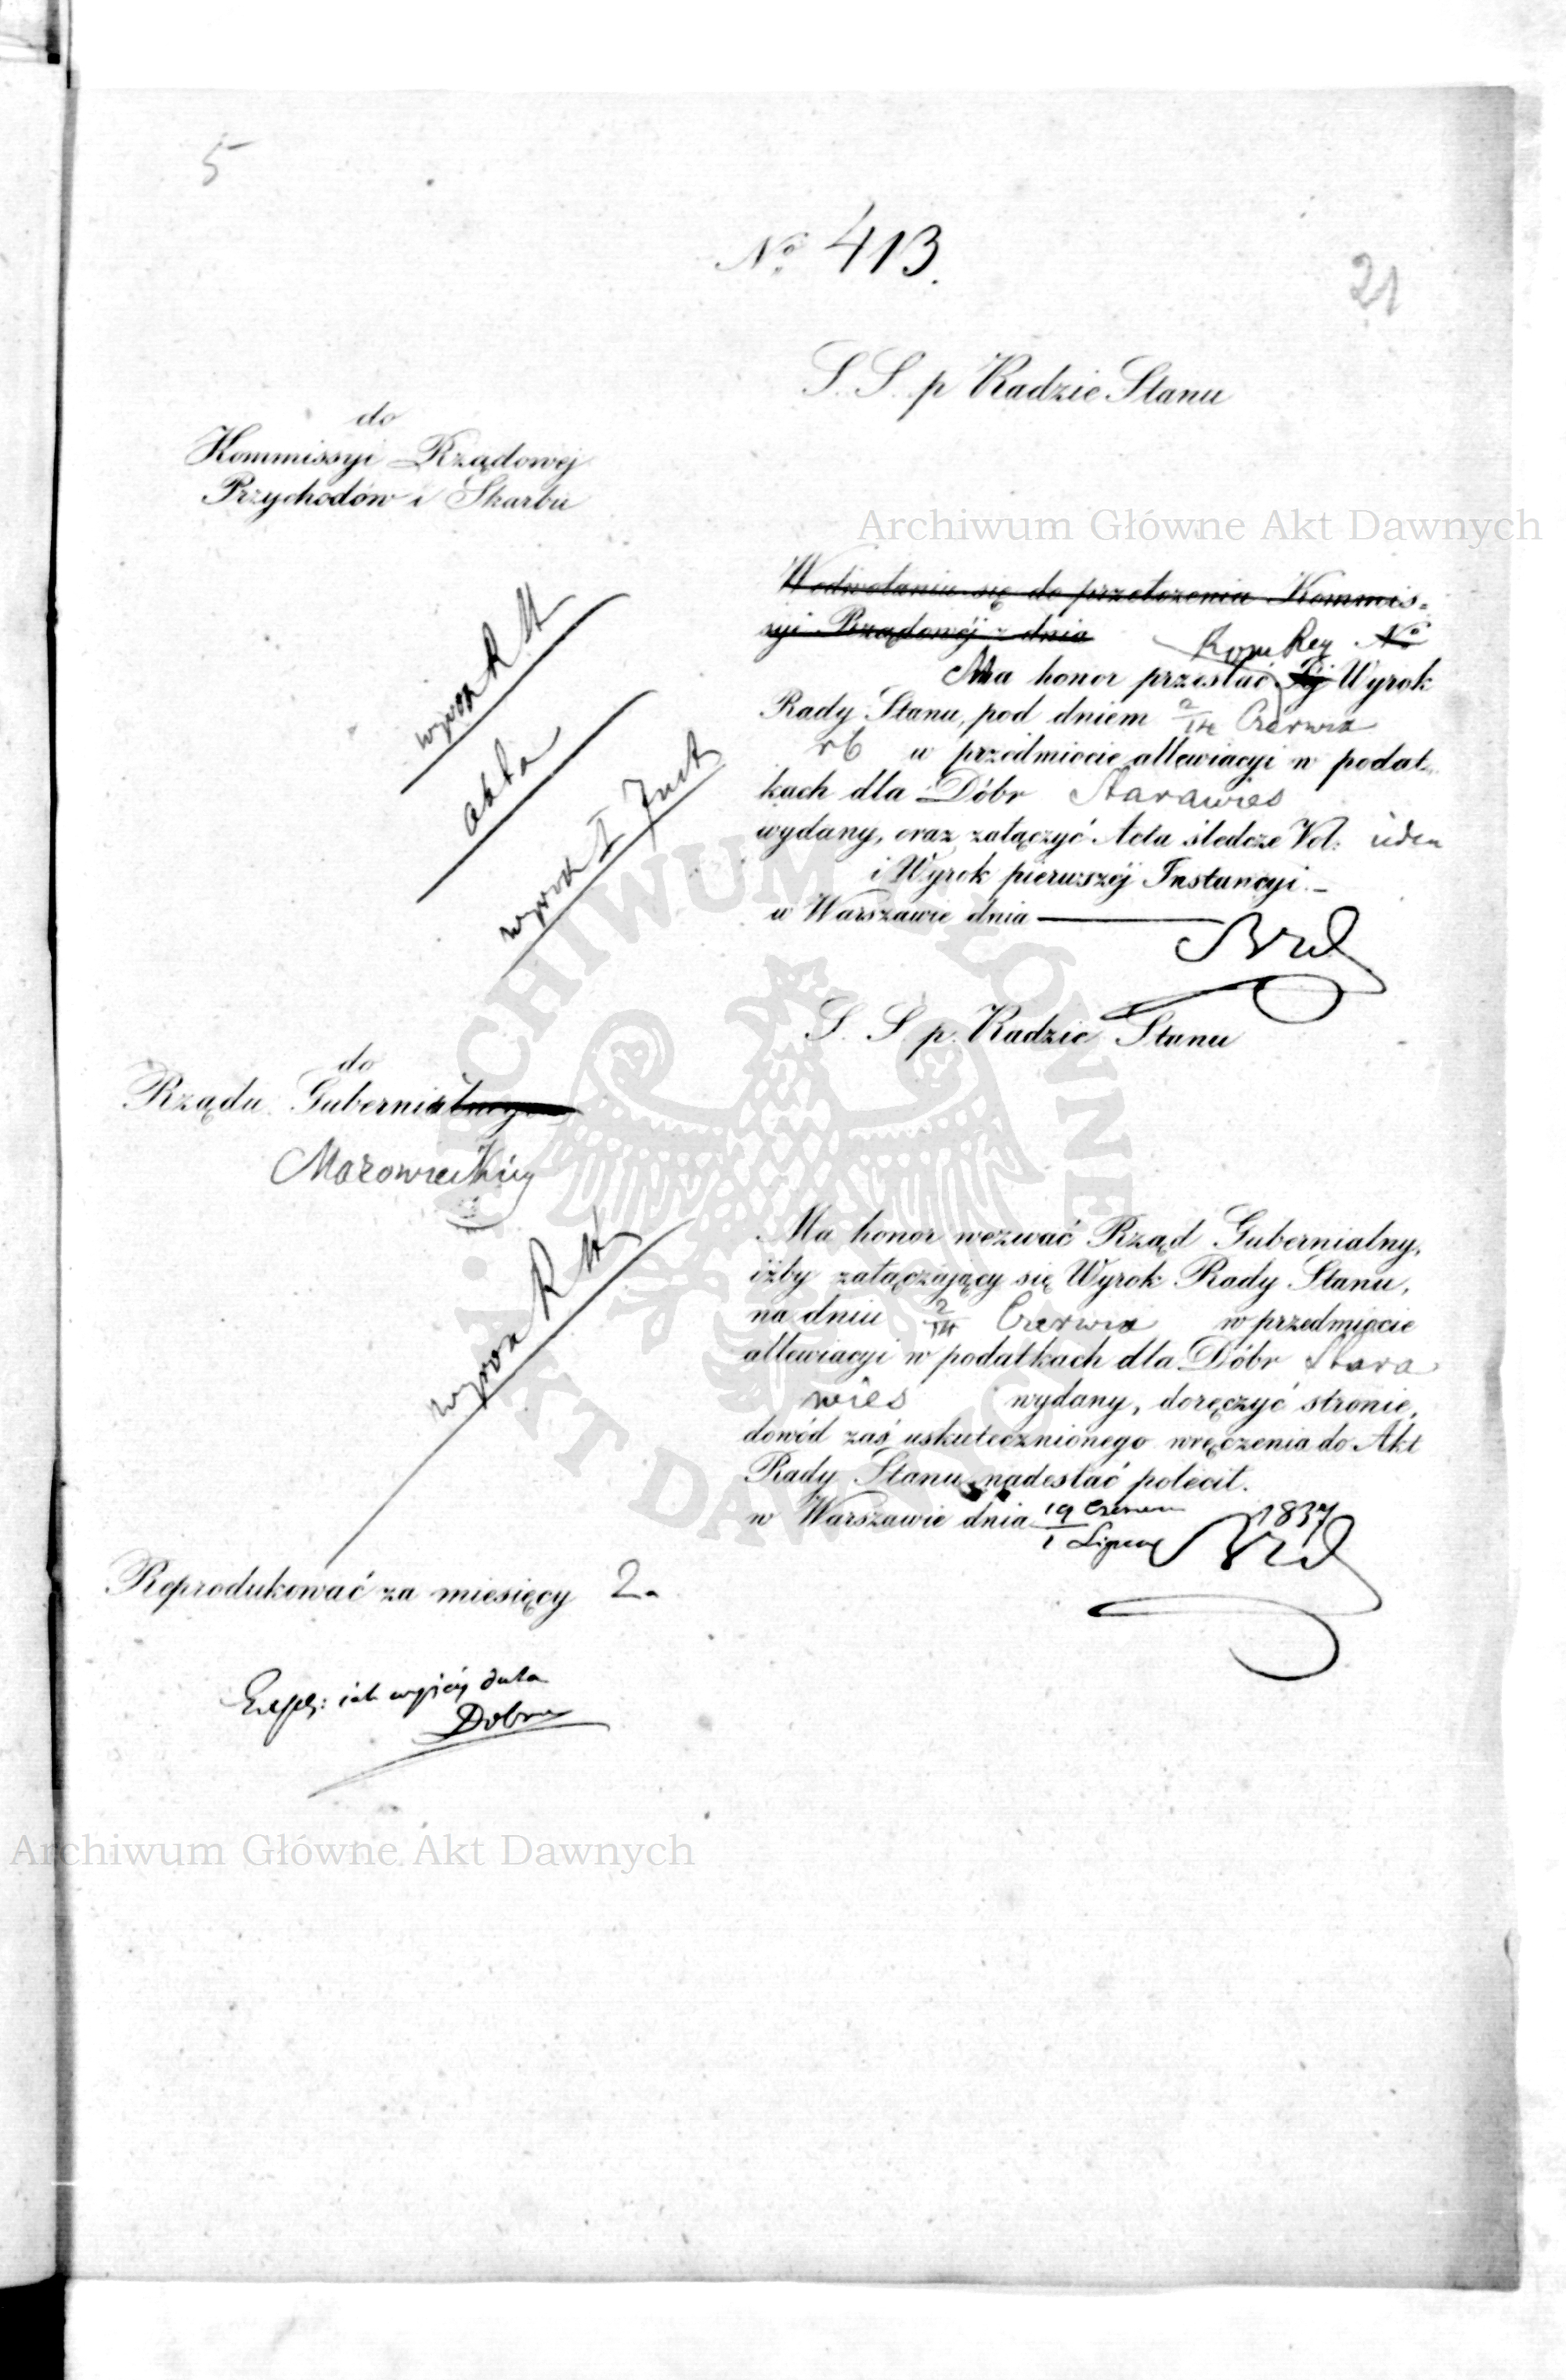 5
No 413.
21
S. S. p Radzie Stanu
do
Kommissyi Rządowej
Przychodów i Skarbu
Archiwum Główne Akt Dawnych
W odwołaniu się do przełożenia Kommis=
syi Rządowéj z dnia No
Kom Rzą
Ma honor przesłać Jej Wyrok
Rady Stanu, pod dniem 2/14 Czerwca
rb w przedmiocie allewiacyi w podat=
kach dla Dóbr Starawies
wydany, oraz załączyć Acta śledcze Vol: jeden
i Wyrok pierwszéj Instancyi.–
w Warszawie dnia
wyrok R St
akta
wyrok I Inst
S. S. p. Radzie Stanu
do
Rządu Gubernialnego
Mazowieckieg
Ma honor wezwać Rząd Gubernialny,
iżby załączający się Wyrok Rady Stanu,
na dniu 2/14 Czerwca w przedmiocie
allewiacyi w podatkach dla Dóbr Stara
wies wydany, doręczyć stronie,
dowód zaś uskutecznionego wręczenia do Akt
Rady Stanu nadesłać polecił.
w Warszawie dnia 19 Czerwca / 1 Lipca 1837
wyrok R St
Reprodukować za miesięcy 2.
wyżéj data
ARCHIWUM GŁÓWNE AKT DAWNYCH
Archiwum Główne Akt Dawnych